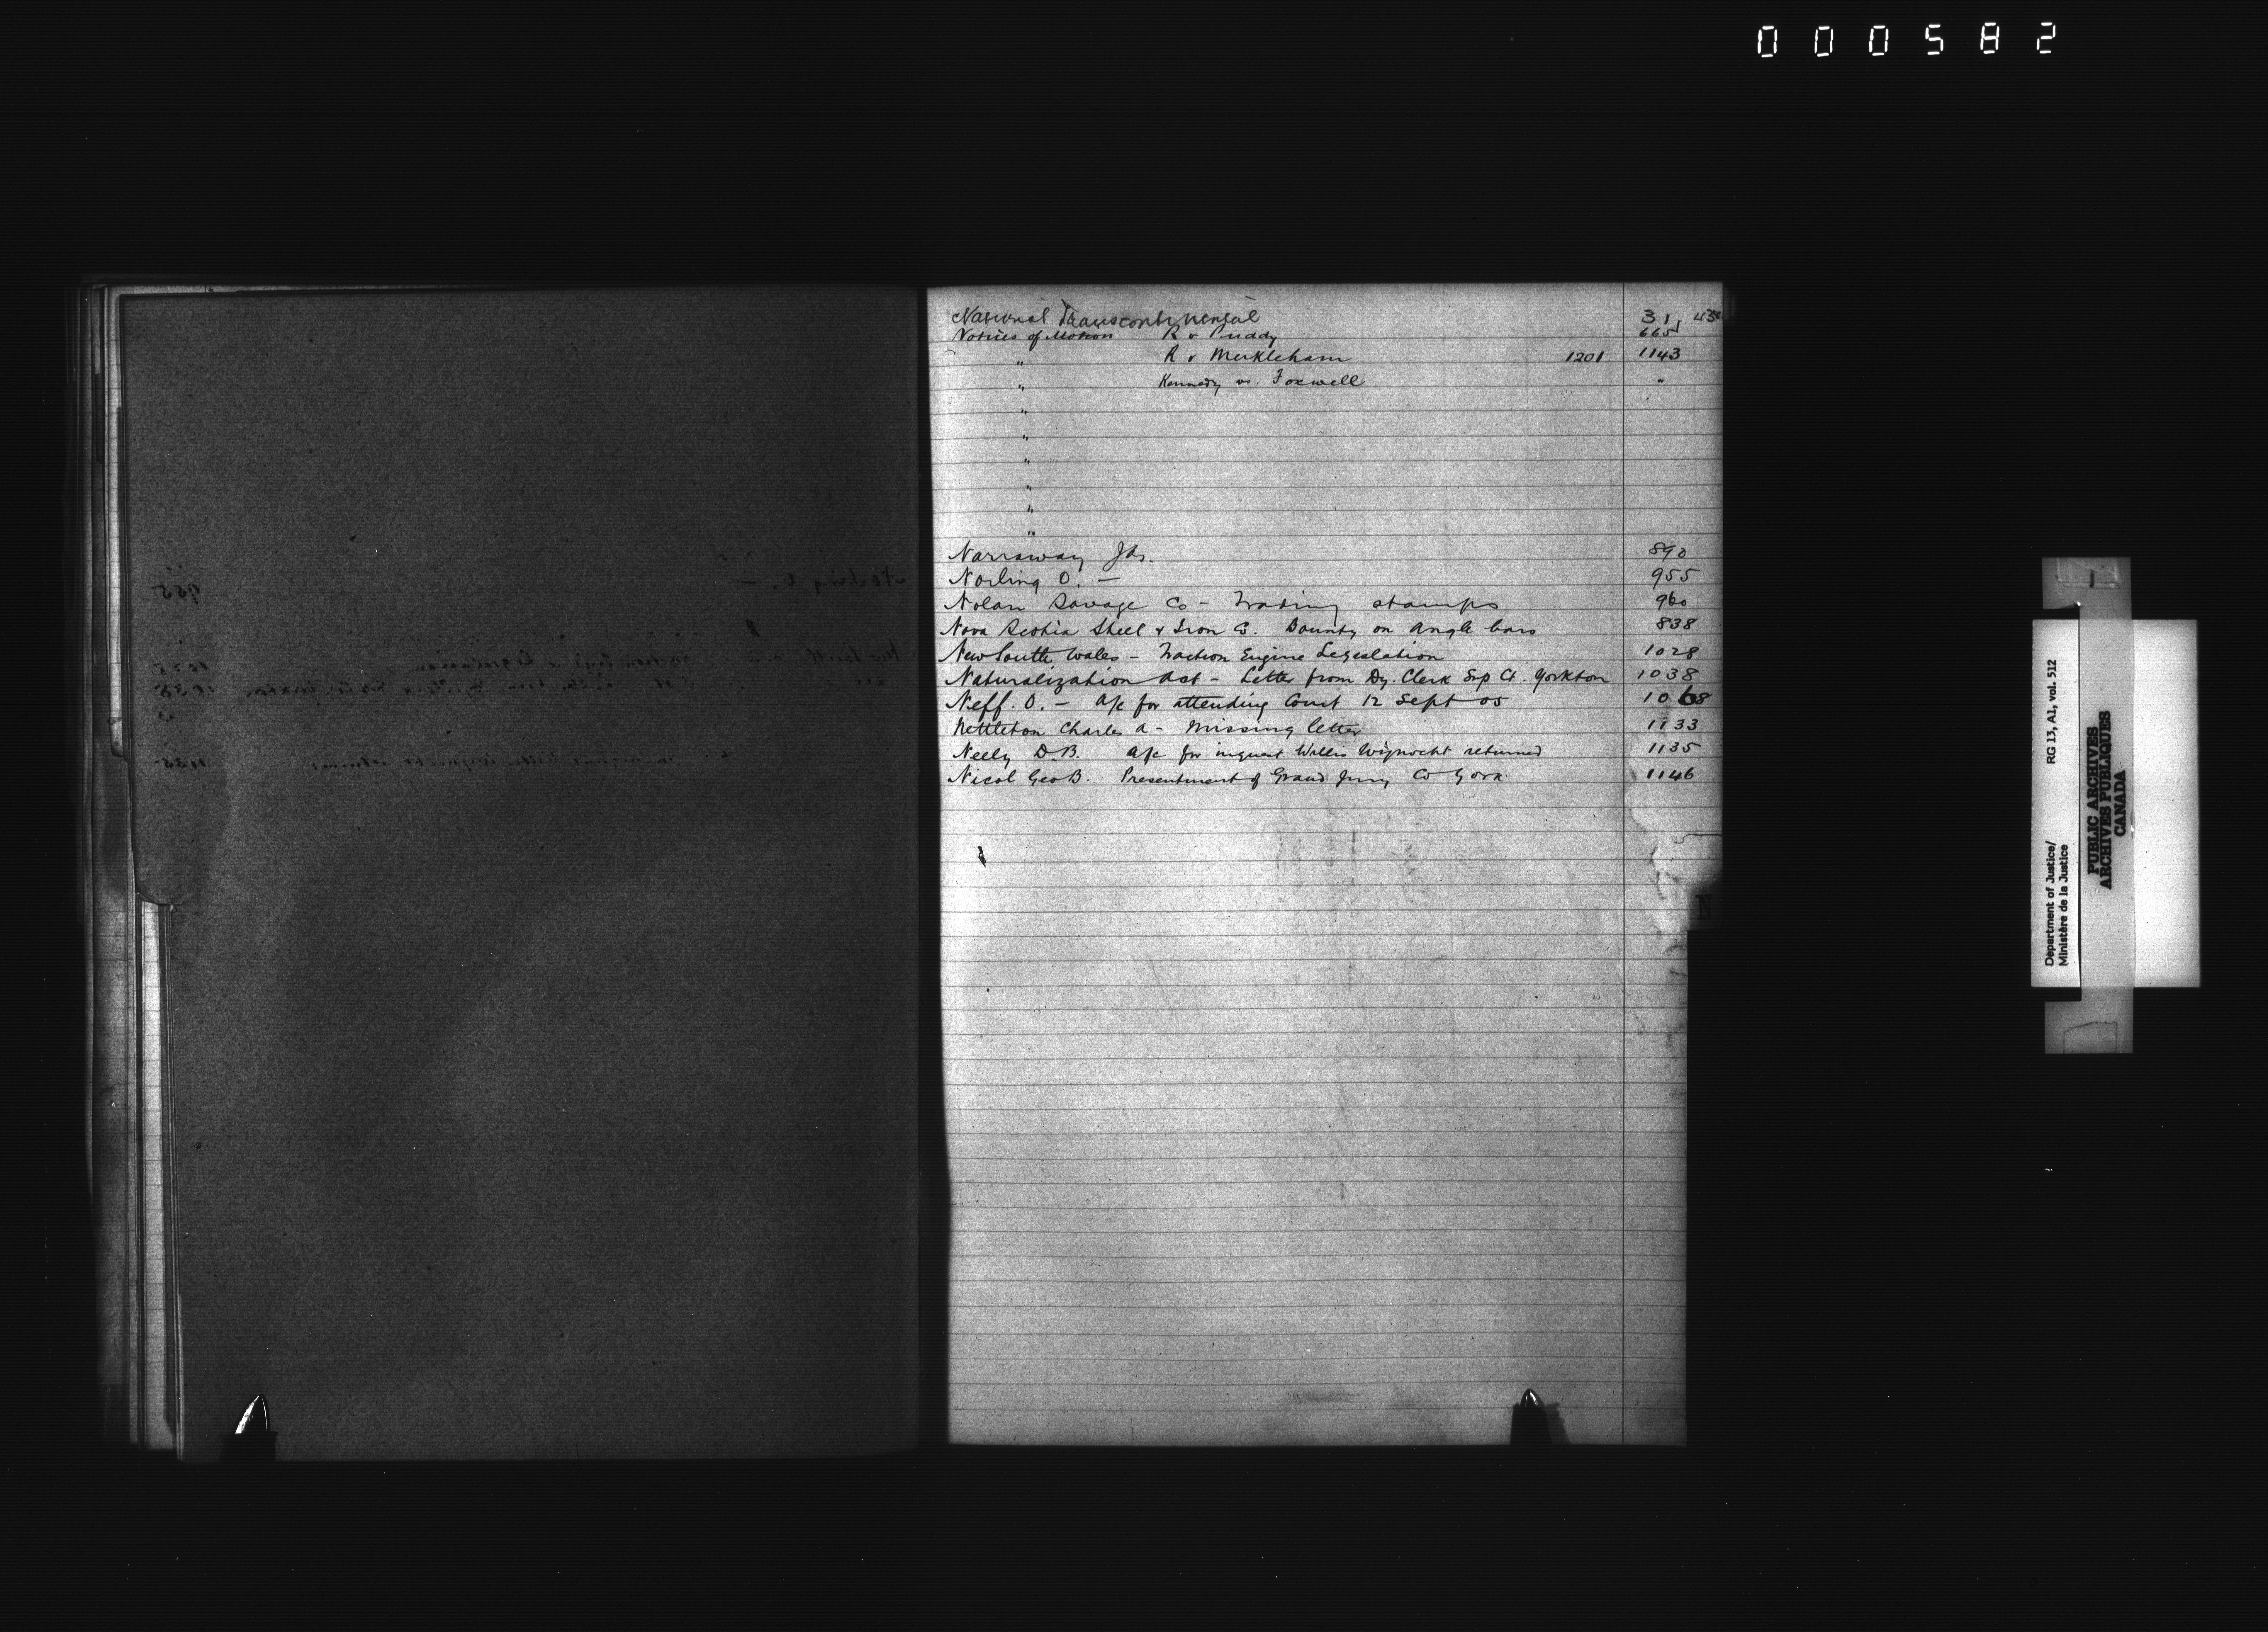 000582
National Transcontinental 31 43
Notices of Motion R v Puddy 665
" R v Muckleham 1201 1143
" Kennedy vs. Foxwell "
"
"
"
"
"
"
Narraway Jas. 890
Norling O. — 955
Nolan Savage Co - Trading stamps 960
Nova Scotia Steel & Iron Co. Bounty on angle bars 838
New South Wales - Traction Engine Legislation 1028
Naturalization Act - Letter from Dy. Clerk Sup Ct. Yorkton 1038
Neff. O. - A/c for attending Court 12 Sept 05 1068
Nettleton Charles A - Missing letter 1133
Neely D.B. A/c for inquest Willis returned 1135
Nicol Geo B. Presentment of Grand Jury Co York 1146
N
Department of Justice/
Ministère de la Justice
RG 13, A1, vol. 512
PUBLIC ARCHIVES
ARCHIVES PUBLIQUES
CANADA